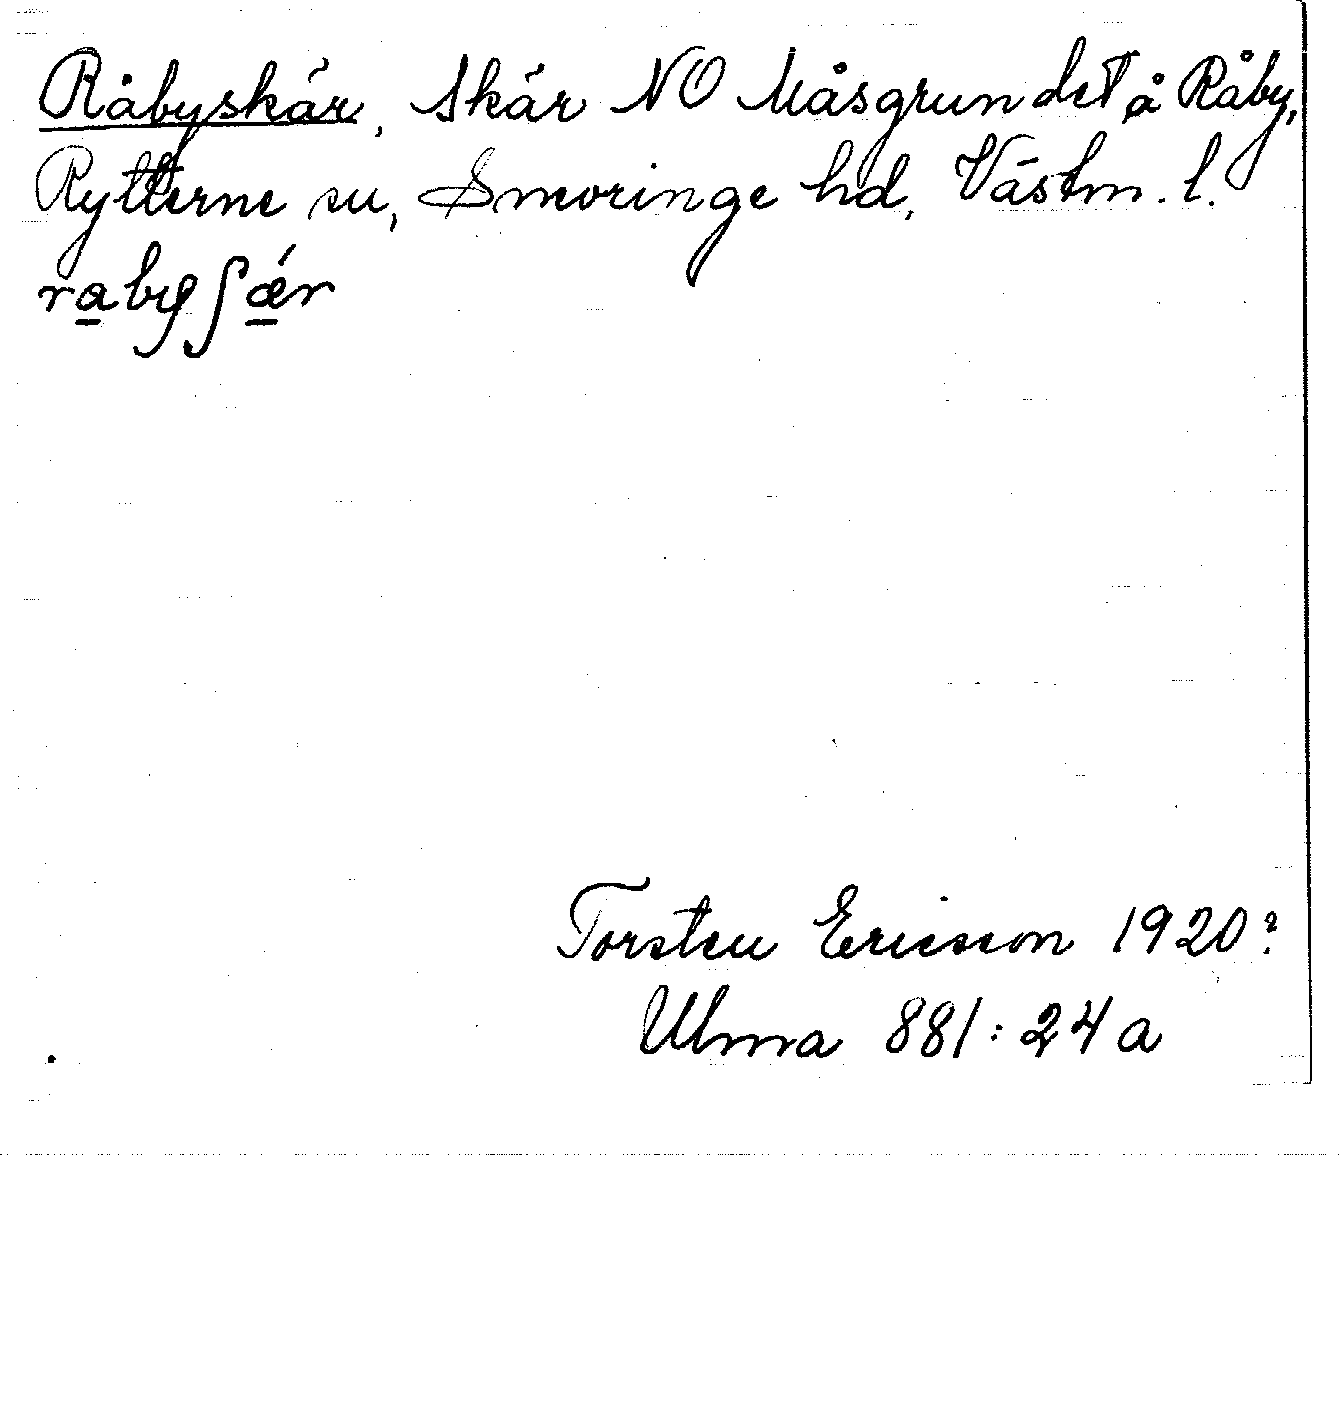 Råbyskär, Skär NO Måsgrundet å Råby,
Rytterne sn, Snevringe hd, Västm. l.
rabyʃǽr
Torsten Ericsson 1920?
Ulma 881:24a